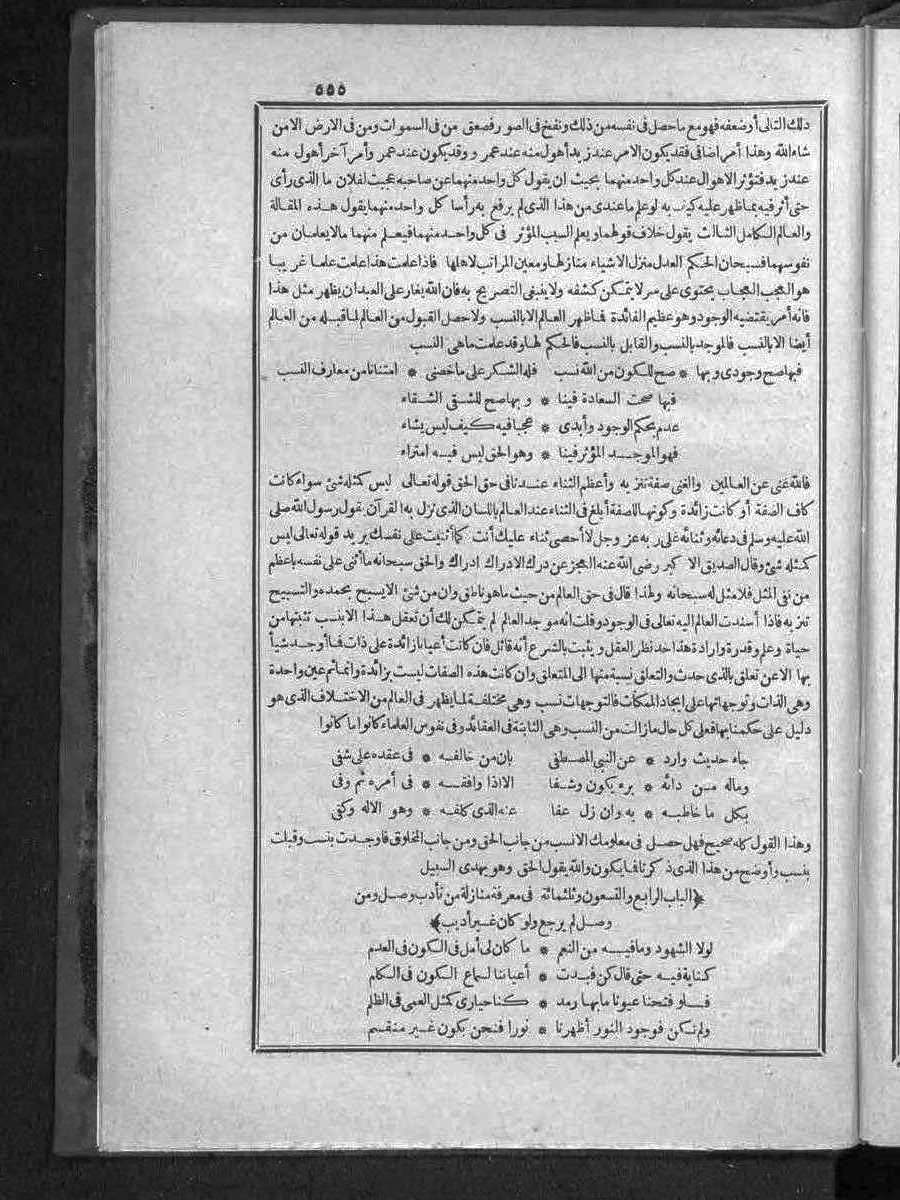 ٥٥٥
ذلك التالى أوضعفه فهو مع ماحصل فى نفسه من ذلك ونفخ فى الصور فصعق من فى السموات ومن فى الارض الامن
شاء الله وهذا أمر اضافى فقد يكون الامر عند زيد أهول منه عند عمرو وقد يكون عند عمر وأمر آخر أهول منه
عند زيد فتؤثر الاهوال عند كل واحد منهما بحيث ان يقول كل واحد منهما عن صاحبه عجبت لفلان ما الذى رأى
حتى أثر فيه بما ظهر عليه كيف به لو علم ماعندى من هذا الذى لم يرفع به رأسا كل واحد منهما يقول هذه المقالة
والعالم الكامل الثالث يقول خلاف قولهما ويعلم السبب المؤثر فى كل واحد منهما فيعلم منهما مالايعلمان من
نفوسهما فسبحان الحكم العدل منزل الاشياء منازلها ومعين المراتب لاهلها فاذا علمت هذا علمت علما غريبا
هو العجب العجاب يحتوى على سر لايتمكن كشفه ولاينبغى التصريح به فان الله يغار على العبد ان يظهر مثل هذا
فانه أمر يقتضيه الوجود وهو عظيم الفائدة فما ظهر العالم الا بالنسب ولا حصل القبول من العالم لما قبله من العالم
أيضا الا بالنسب فالموجد بالنسب والقابل بالنسب فالحكم لها وقد علمت ماهى النسب
فبها صح وجودى وبها * صح للكون من الله نسب فله الشكر على ماخصنى * امتنانا من معارف النسب
فبها صحت السعادة فينا * وبها صح للشقى الشقاء
عدم يحكم الوجود وأبدى * عجبا فيه كيف ليس يشاء
فهو الموجد المؤثر فينا * وهو الحق ليس فيه امتراء
فالله غنى عن العالمين والغنى صفة تنزيه وأعظم الثناء عندنا فى حق الحق قوله تعالى ليس كمثله شئ سواء كانت
كاف الصفة أو كانت زائدة وكونها للصفة أبلغ فى الثناء عند العالم باللسان الذى نزل به القرآن يقول رسول الله صلى
الله عليه وسلم فى دعائه وثنائه على ربه عز وجل لا أحصى ثناء عليك أنت كما أثنيت على نفسك يريد قوله تعالى ليس
كمثله شئ وقال الصديق الاكبر رضى الله عنه العجز عن درك الادراك ادراك والحق سبحانه ما أثنى على نفسه باعظم
من نفى المثل فلا مثل له سبحانه ولهذا قال فى حق العالم من حيث ماهو ناطق وان من شئ الا يسبح بحمده والتسبيح
تنزيه فاذا أسندت العالم اليه تعالى فى الوجود وقلت انه موجد العالم لم يتمكن لك أن تعقل هذا الا بنسب تثبتها من
حياة وعلم وقدرة وارادة هذا حد نظر العقل ويثبت بالشرع أنه قائل فان كانت أعيانا زائدة على ذات فما أوجد شيأ
بها الا عن تعلق بالذى حدث والتعلق نسبة منها الى المتعلق وان كانت هذه الصفات ليست بزائدة وانما ثم عين واحدة
وهى الذات وتوجهاتها على ايجاد الممكنات فالتوجهات نسب وهى مختلفة لما يظهر فى العالم من الاختلاف الذى هو
دليل على حكمنا بها فعلى كل حال مازالت من النسب وهى الثابتة فى العقائد وفى نفوس العلماء كانوا ما كانوا
جاء حديث وارد * عن النبى المصطفى بان من خالفه * فى عقده على شفى
وماله من دائه * برء يكون وشفا الا اذا وافقه * فى أمره ثم وفى
بكل ما خاطبه * به وان زل عفا عنه الذى كلفه * وهو الاله وكفى
وهذا القول كله صحيح فهل حصل فى معلومك الا نسب من جانب الحق ومن جانب المخلوق فاوجدت بنسب وقبلت
بنسب وأوضح من هذا الذى ذكرنا فما يكون والله يقول الحق وهو يهدى السبيل
﴿الباب الرابع والتسعون وثلثمائة فى معرفة منازلة من تأدب وصل ومن
وصل لم يرجع ولو كان غير أديب﴾
لولا الشهود ومافيه من النعم * ما كان لى أمل فى الكون فى العدم
كناية فيه حتى قال كن فبدت * أعياننا لسماع الكون فى الكلم
فلو فتحنا عيونا مابها رمد * كنا حيارى كمثل العمى فى الظلم
ولم نكن فوجود النور أظهرنا * نورا فنحن بكون غير منقسم